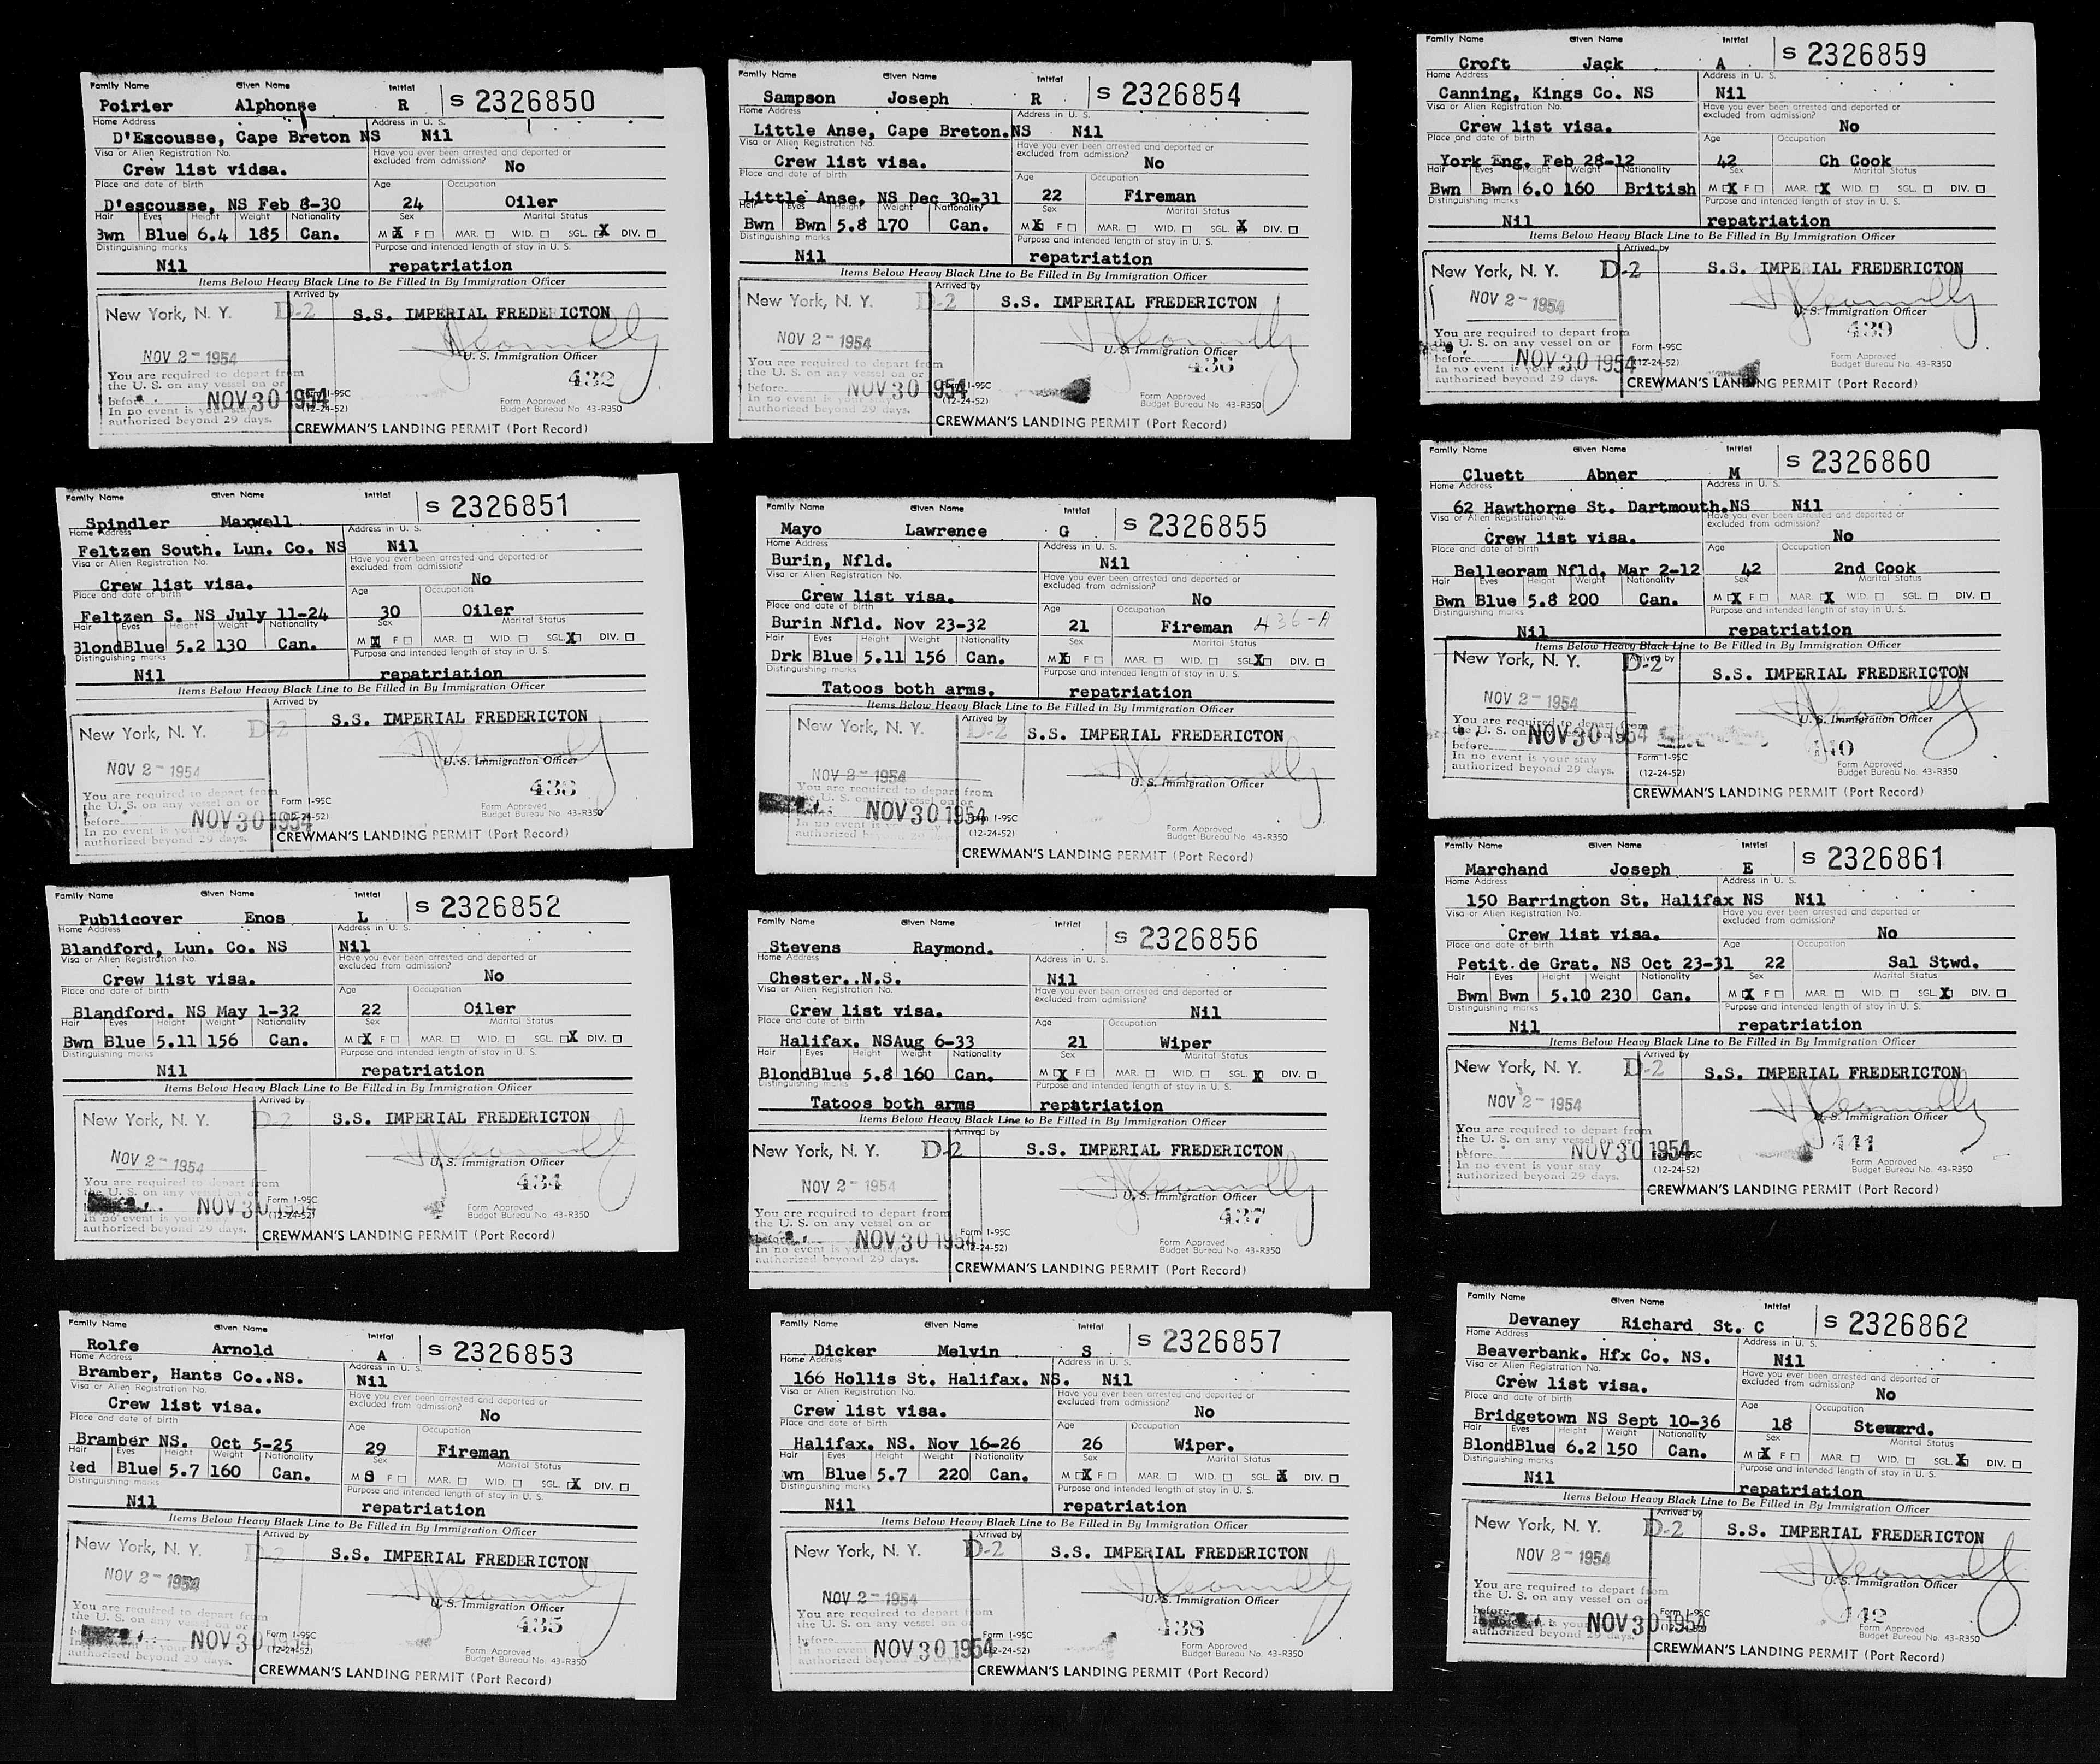 Family Name Given Name Initial
Poirier Alphonse R S 2326850
Home Address Address in U. S.
D'Escousse, Cape Breton NS Nil
Visa or Alien Registration No. Have you ever been arrested and deported or excluded from admission?
Crew list vidsa. No
Place and date of birth Age Occupation
D'escousse, NS Feb 8-30 24 Oiler
Hair Eyes Height Weight Nationality Sex Marital Status
Bwn Blue 6.4 185 Can. M X F MAR. WID. SGL. X DIV.
Distinguishing marks Purpose and intended length of stay in U. S.
Nil repatriation
Items Below Heavy Black Line to Be Filled in By Immigration Officer
Arrived by
New York, N. Y. D-2 S.S. IMPERIAL FREDERICTON
NOV 2 - 1954 U. S. Immigration Officer
You are required to depart from 432
the U. S. on any vessel on or
before NOV 30 1954 Form I-95C
In no event is your stay (12-24-52) Form Approved
authorized beyond 29 days. Budget Bureau No. 43-R350
CREWMAN'S LANDING PERMIT (Port Record)
Family Name Given Name Initial
Spindler Maxwell S 2326851
Home Address Address in U. S.
Feltzen South. Lun. Co. NS Nil
Visa or Alien Registration No. Have you ever been arrested and deported or excluded from admission?
Crew list visa. No
Place and date of birth Age Occupation
Feltzen S. NS July 11-24 30 Oiler
Hair Eyes Height Weight Nationality Sex Marital Status
BlondBlue 5.2 130 Can. M X F MAR. WID. SGL. X DIV.
Distinguishing marks Purpose and intended length of stay in U. S.
Nil repatriation
Items Below Heavy Black Line to Be Filled in By Immigration Officer
Arrived by
New York, N. Y. D-2 S.S. IMPERIAL FREDERICTON
NOV 2 - 1954 U. S. Immigration Officer
You are required to depart from 433
the U. S. on any vessel on or Form I-95C
before NOV 30 1954 (12-24-52) Form Approved
In no event is your stay Budget Bureau No. 43-R350
authorized beyond 29 days. CREWMAN'S LANDING PERMIT (Port Record)
Family Name Given Name Initial
Publicover Enos L S 2326852
Home Address Address in U. S.
Blandford, Lun. Co. NS Nil
Visa or Alien Registration No. Have you ever been arrested and deported or excluded from admission?
Crew list visa. No
Place and date of birth Age Occupation
Blandford. NS May 1-32 22 Oiler
Hair Eyes Height Weight Nationality Sex Marital Status
Bwn Blue 5.11 156 Can. M X F MAR. WID. SGL. X DIV.
Distinguishing marks Purpose and intended length of stay in U. S.
Nil repatriation
Items Below Heavy Black Line to Be Filled in By Immigration Officer
Arrived by
New York, N. Y. D-2 S.S. IMPERIAL FREDERICTON
NOV 2 - 1954 U. S. Immigration Officer
You are required to depart from 434
the U. S. on any vessel on or Form I-95C
NOV 30 1954 (12-24-52) Form Approved
In no event is your stay Budget Bureau No. 43-R350
authorized beyond 29 days. CREWMAN'S LANDING PERMIT (Port Record)
Family Name Given Name Initial
Rolfe Arnold A S 2326853
Home Address Address in U. S.
Bramber, Hants Co..NS. Nil
Visa or Alien Registration No. Have you ever been arrested and deported or excluded from admission?
Crew list visa. No
Place and date of birth Age Occupation
Bramber NS. Oct 5-25 29 Fireman
Hair Eyes Height Weight Nationality Sex Marital Status
Red Blue 5.7 160 Can. M F MAR. WID. SGL. X DIV.
Distinguishing marks Purpose and intended length of stay in U. S.
Nil repatriation
Items Below Heavy Black Line to Be Filled in By Immigration Officer
Arrived by
New York, N. Y. D-2 S.S. IMPERIAL FREDERICTON
NOV 2 - 1954 U. S. Immigration Officer
You are required to depart from 435
the U. S. on any vessel on or Form I-95C
NOV 30 1954 (12-24-52) Form Approved
Budget Bureau No. 43-R350
authorized beyond 29 days. CREWMAN'S LANDING PERMIT (Port Record)
Family Name Given Name Initial
Sampson Joseph R S 2326854
Home Address Address in U. S.
Little Anse, Cape Breton.NS Nil
Visa or Alien Registration No. Have you ever been arrested and deported or excluded from admission?
Crew list visa. No
Place and date of birth Age Occupation
Little Anse, NS Dec 30-31 22 Fireman
Hair Eyes Height Weight Nationality Sex Marital Status
Bwn Bwn 5.8 170 Can. M X F MAR. WID. SGL. X DIV.
Distinguishing marks Purpose and intended length of stay in U. S.
Nil repatriation
Items Below Heavy Black Line to Be Filled in By Immigration Officer
Arrived by
New York, N. Y. D-2 S.S. IMPERIAL FREDERICTON
NOV 2 - 1954 U. S. Immigration Officer
You are required to depart from 436
the U. S. on any vessel on or
before NOV 30 1954 Form I-95C
In no event is your stay (12-24-52) Form Approved
authorized beyond 29 days. Budget Bureau No. 43-R350
CREWMAN'S LANDING PERMIT (Port Record)
Family Name Given Name Initial
Mayo Lawrence G S 2326855
Home Address Address in U. S.
Burin, Nfld. Nil
Visa or Alien Registration No. Have you ever been arrested and deported or excluded from admission?
Crew list visa. No
Place and date of birth Age Occupation
Burin Nfld. Nov 23-32 21 Fireman 436-A
Hair Eyes Height Weight Nationality Sex Marital Status
Drk Blue 5.11 156 Can. M X F MAR. WID. SGL. X DIV.
Distinguishing marks Purpose and intended length of stay in U. S.
Tatoos both arms. repatriation
Items Below Heavy Black Line to Be Filled in By Immigration Officer
Arrived by
New York, N. Y. D-2 S.S. IMPERIAL FREDERICTON
NOV 2 - 1954 U. S. Immigration Officer
You are required to depart from
NOV 30 1954 Form I-95C
In no event is your stay (12-24-52) Form Approved
authorized Budget Bureau No. 43-R350
CREWMAN'S LANDING PERMIT (Port Record)
Family Name Given Name Initial
Stevens Raymond. S 2326856
Home Address Address in U. S.
Chester..N.S. Nil
Visa or Alien Registration No. Have you ever been arrested and deported or excluded from admission?
Crew list visa. Nil
Place and date of birth Age Occupation
Halifax. NSAug 6-33 21 Wiper
Hair Eyes Height Weight Nationality Sex Marital Status
BlondBlue 5.8 160 Can. M X F MAR. WID. SGL. X DIV.
Distinguishing marks Purpose and intended length of stay in U. S.
Tatoos both arms repatriation
Items Below Heavy Black Line to Be Filled in By Immigration Officer
Arrived by
New York, N. Y. D-2 S.S. IMPERIAL FREDERICTON
NOV 2 - 1954 U. S. Immigration Officer
You are required to depart from 437
the U. S. on any vessel on or
before NOV 30 1954 Form I-95C
In no event is your stay (12-24-52) Form Approved
authorized beyond 29 days. Budget Bureau No. 43-R350
CREWMAN'S LANDING PERMIT (Port Record)
Family Name Given Name Initial
Dicker Melvin S S 2326857
Home Address Address in U. S.
166 Hollis St. Halifax. NS. Nil
Visa or Alien Registration No. Have you ever been arrested and deported or excluded from admission?
Crew list visa. No
Place and date of birth Age Occupation
Halifax. NS. Nov 16-26 26 Wiper.
Hair Eyes Height Weight Nationality Sex Marital Status
wn Blue 5.7 220 Can. M X F MAR. WID. SGL. X DIV.
Distinguishing marks Purpose and intended length of stay in U. S.
Nil repatriation
Items Below Heavy Black Line to Be Filled in By Immigration Officer
Arrived by
New York, N. Y. D-2 S.S. IMPERIAL FREDERICTON
NOV 2 - 1954 U. S. Immigration Officer
You are required to depart from 438
the U. S. on any vessel on or
before NOV 30 1954 Form I-95C
(12-24-52) Form Approved
authorized beyond 29 days. Budget Bureau No. 43-R350
CREWMAN'S LANDING PERMIT (Port Record)
Family Name Given Name Initial
Croft Jack A S 2326859
Home Address Address in U. S.
Canning, Kings Co. NS Nil
Visa or Alien Registration No. Have you ever been arrested and deported or excluded from admission?
Crew list visa. No
Place and date of birth Age Occupation
York Eng. Feb 28-12 42 Ch Cook
Hair Eyes Height Weight Nationality Sex Marital Status
Bwn Bwn 6.0 160 British M X F MAR. X WID. SGL. DIV.
Distinguishing marks Purpose and intended length of stay in U. S.
Nil repatriation
Items Below Heavy Black Line to Be Filled in By Immigration Officer
Arrived by
New York, N. Y. D-2 S.S. IMPERIAL FREDERICTON
NOV 2 - 1954 U. S. Immigration Officer
You are required to depart from 439
the U. S. on any vessel on or Form I-95C
before NOV 30 1954 (12-24-52) Form Approved
In no event is your stay Budget Bureau No. 43-R350
authorized beyond 29 days. CREWMAN'S LANDING PERMIT (Port Record)
Family Name Given Name Initial
Cluett Abner M S 2326860
Home Address Address in U. S.
62 Hawthorne St. Dartmouth.NS Nil
Visa or Alien Registration No. Have you ever been arrested and deported or excluded from admission?
Crew list visa. No
Place and date of birth Age Occupation
Belleoram Nfld. Mar 2-12 42 2nd Cook
Hair Eyes Height Weight Nationality Sex Marital Status
Bwn Blue 5.8 200 Can. M X F MAR. X WID. SGL. DIV.
Distinguishing marks Purpose and intended length of stay in U. S.
Nil repatriation
Items Below Heavy Black Line to Be Filled in By Immigration Officer
Arrived by
New York, N. Y. D-2 S.S. IMPERIAL FREDERICTON
NOV 2 - 1954 U. S. Immigration Officer
You are required to depart from 440
the U. S. on NOV 30 1954
before
In no event is your stay Form I-95C Form Approved
authorized beyond 29 days. (12-24-52) Budget Bureau No. 43-R350
CREWMAN'S LANDING PERMIT (Port Record)
Family Name Given Name Initial
Marchand Joseph E S 2326861
Home Address Address in U. S.
150 Barrington St. Halifax NS Nil
Visa or Alien Registration No. Have you ever been arrested and deported or excluded from admission?
Crew list visa. No
Place and date of birth Age Occupation
Petit de Grat. NS Oct 23-31 22 Sal Stwd.
Hair Eyes Height Weight Nationality Sex Marital Status
Bwn Bwn 5.10 230 Can. M X F MAR. WID. SGL. X DIV.
Distinguishing marks Purpose and intended length of stay in U. S.
Nil repatriation
Items Below Heavy Black Line to Be Filled in By Immigration Officer
Arrived by
New York, N. Y. D-2 S.S. IMPERIAL FREDERICTON
NOV 2 - 1954 U. S. Immigration Officer
You are required to depart from 441
the U. S. on any vessel on or
before NOV 30 1954 Form I-95C
In no event is your stay (12-24-52) Form Approved
authorized beyond 29 days. Budget Bureau No. 43-R350
CREWMAN'S LANDING PERMIT (Port Record)
Family Name Given Name Initial
Devaney Richard St. C S 2326862
Home Address Address in U. S.
Beaverbank. Hfx Co. NS. Nil
Visa or Alien Registration No. Have you ever been arrested and deported or excluded from admission?
Crew list visa. No
Place and date of birth Age Occupation
Bridgetown NS Sept 10-36 18 Steward.
Hair Eyes Height Weight Nationality Sex Marital Status
BlondBlue 6.2 150 Can. M X F MAR. WID. SGL. X DIV.
Distinguishing marks Purpose and intended length of stay in U. S.
Nil repatriation
Items Below Heavy Black Line to Be Filled in By Immigration Officer
Arrived by
New York, N. Y. D-2 S.S. IMPERIAL FREDERICTON
NOV 2 - 1954 U. S. Immigration Officer
You are required to depart from 442
the U. S. on any vessel on or
before NOV 30 1954 Form I-95C
(12-24-52) Form Approved
authorized beyond 29 days. Budget Bureau No. 43-R350
CREWMAN'S LANDING PERMIT (Port Record)